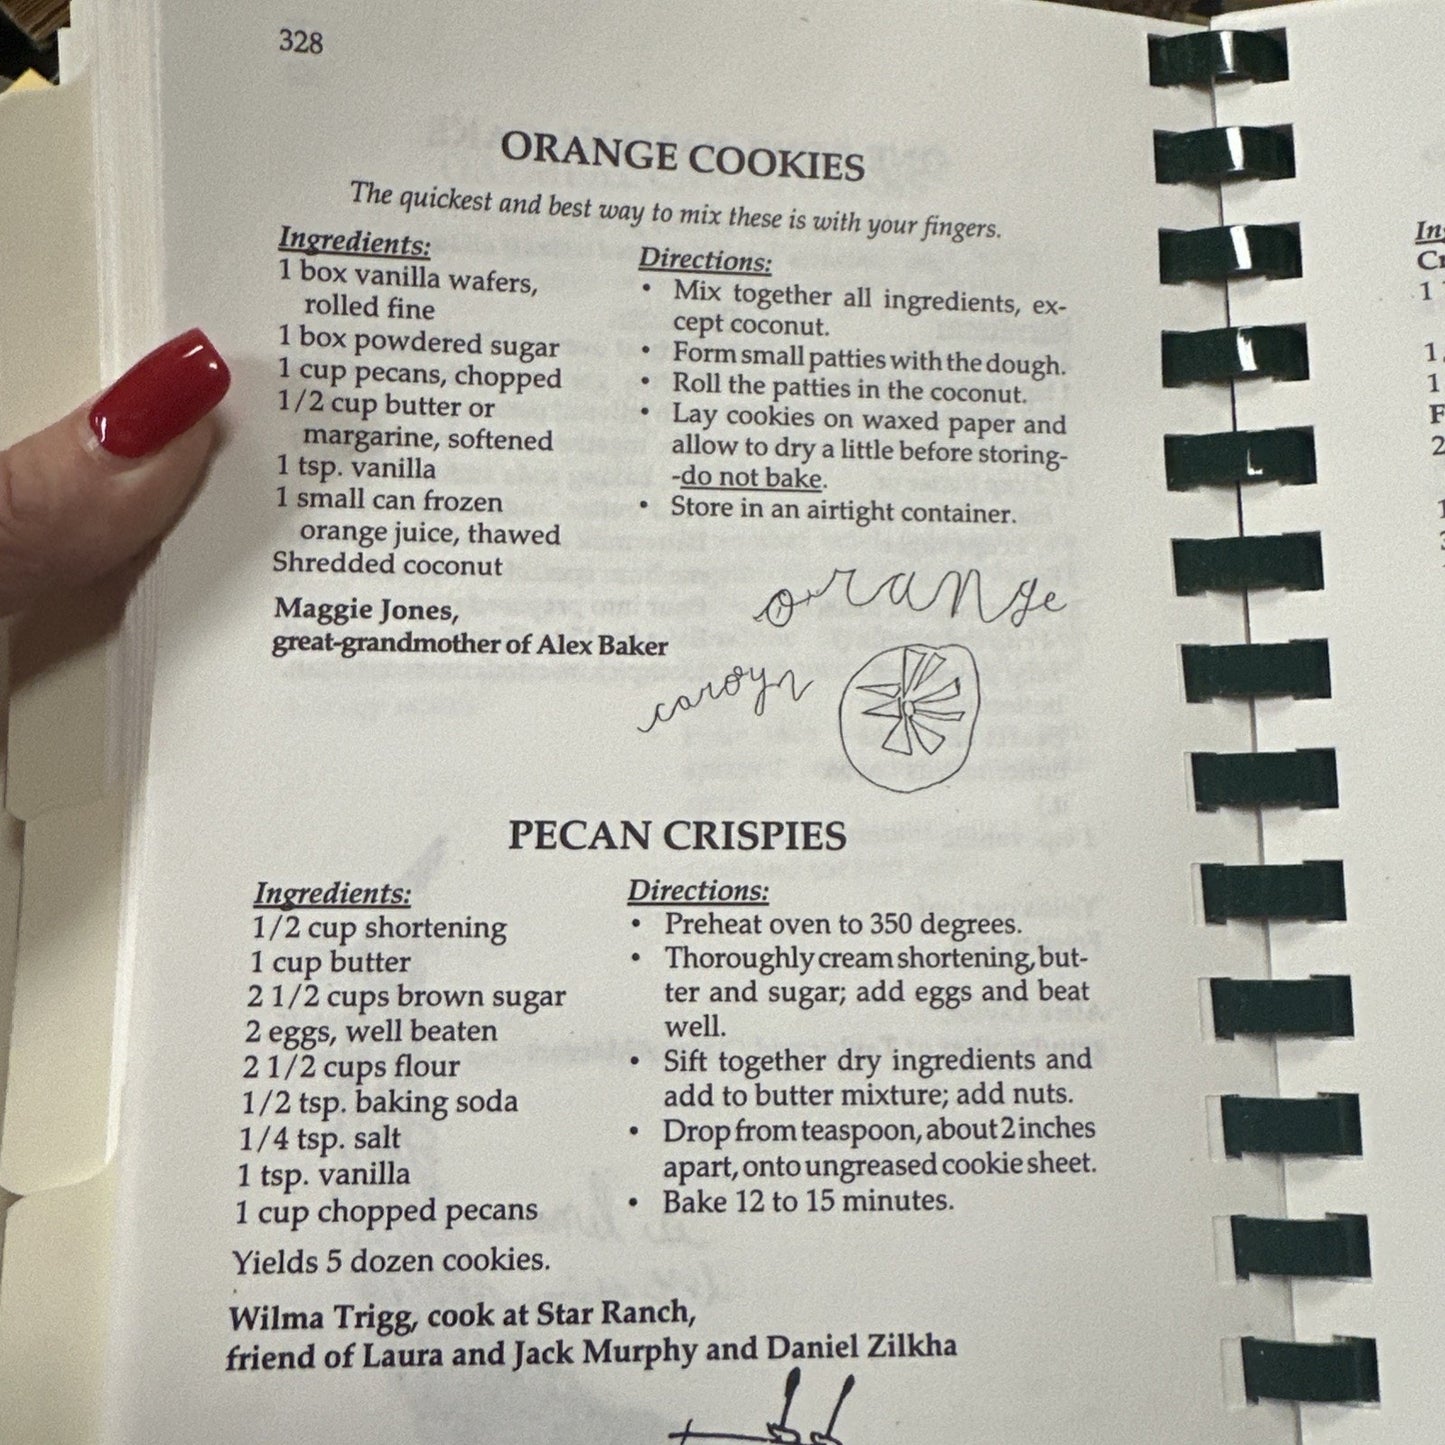 328
ORANGE COOKIES
The quickest and best way to mix these is with your fingers.
Ingredients:
1 box vanilla wafers,
rolled fine
1 box powdered sugar
1 cup pecans, chopped
1/2 cup butter or
margarine, softened
1 tsp. vanilla
1 small can frozen
orange juice, thawed
Shredded coconut
Directions:
• Mix together all ingredients, ex-
cept coconut.
• Form small patties with the dough.
• Roll the patties in the coconut.
• Lay cookies on waxed paper and
allow to dry a little before storing-
-do not bake.
• Store in an airtight container.
Maggie Jones,
great-grandmother of Alex Baker
orange
caroyn
PECAN CRISPIES
Ingredients:
1/2 cup shortening
1 cup butter
2 1/2 cups brown sugar
2 eggs, well beaten
2 1/2 cups flour
1/2 tsp. baking soda
1/4 tsp. salt
1 tsp. vanilla
1 cup chopped pecans
Directions:
• Preheat oven to 350 degrees.
• Thoroughly cream shortening, but-
ter and sugar; add eggs and beat
well.
• Sift together dry ingredients and
add to butter mixture; add nuts.
• Drop from teaspoon, about 2 inches
apart, onto ungreased cookie sheet.
• Bake 12 to 15 minutes.
Yields 5 dozen cookies.
Wilma Trigg, cook at Star Ranch,
friend of Laura and Jack Murphy and Daniel Zilkha